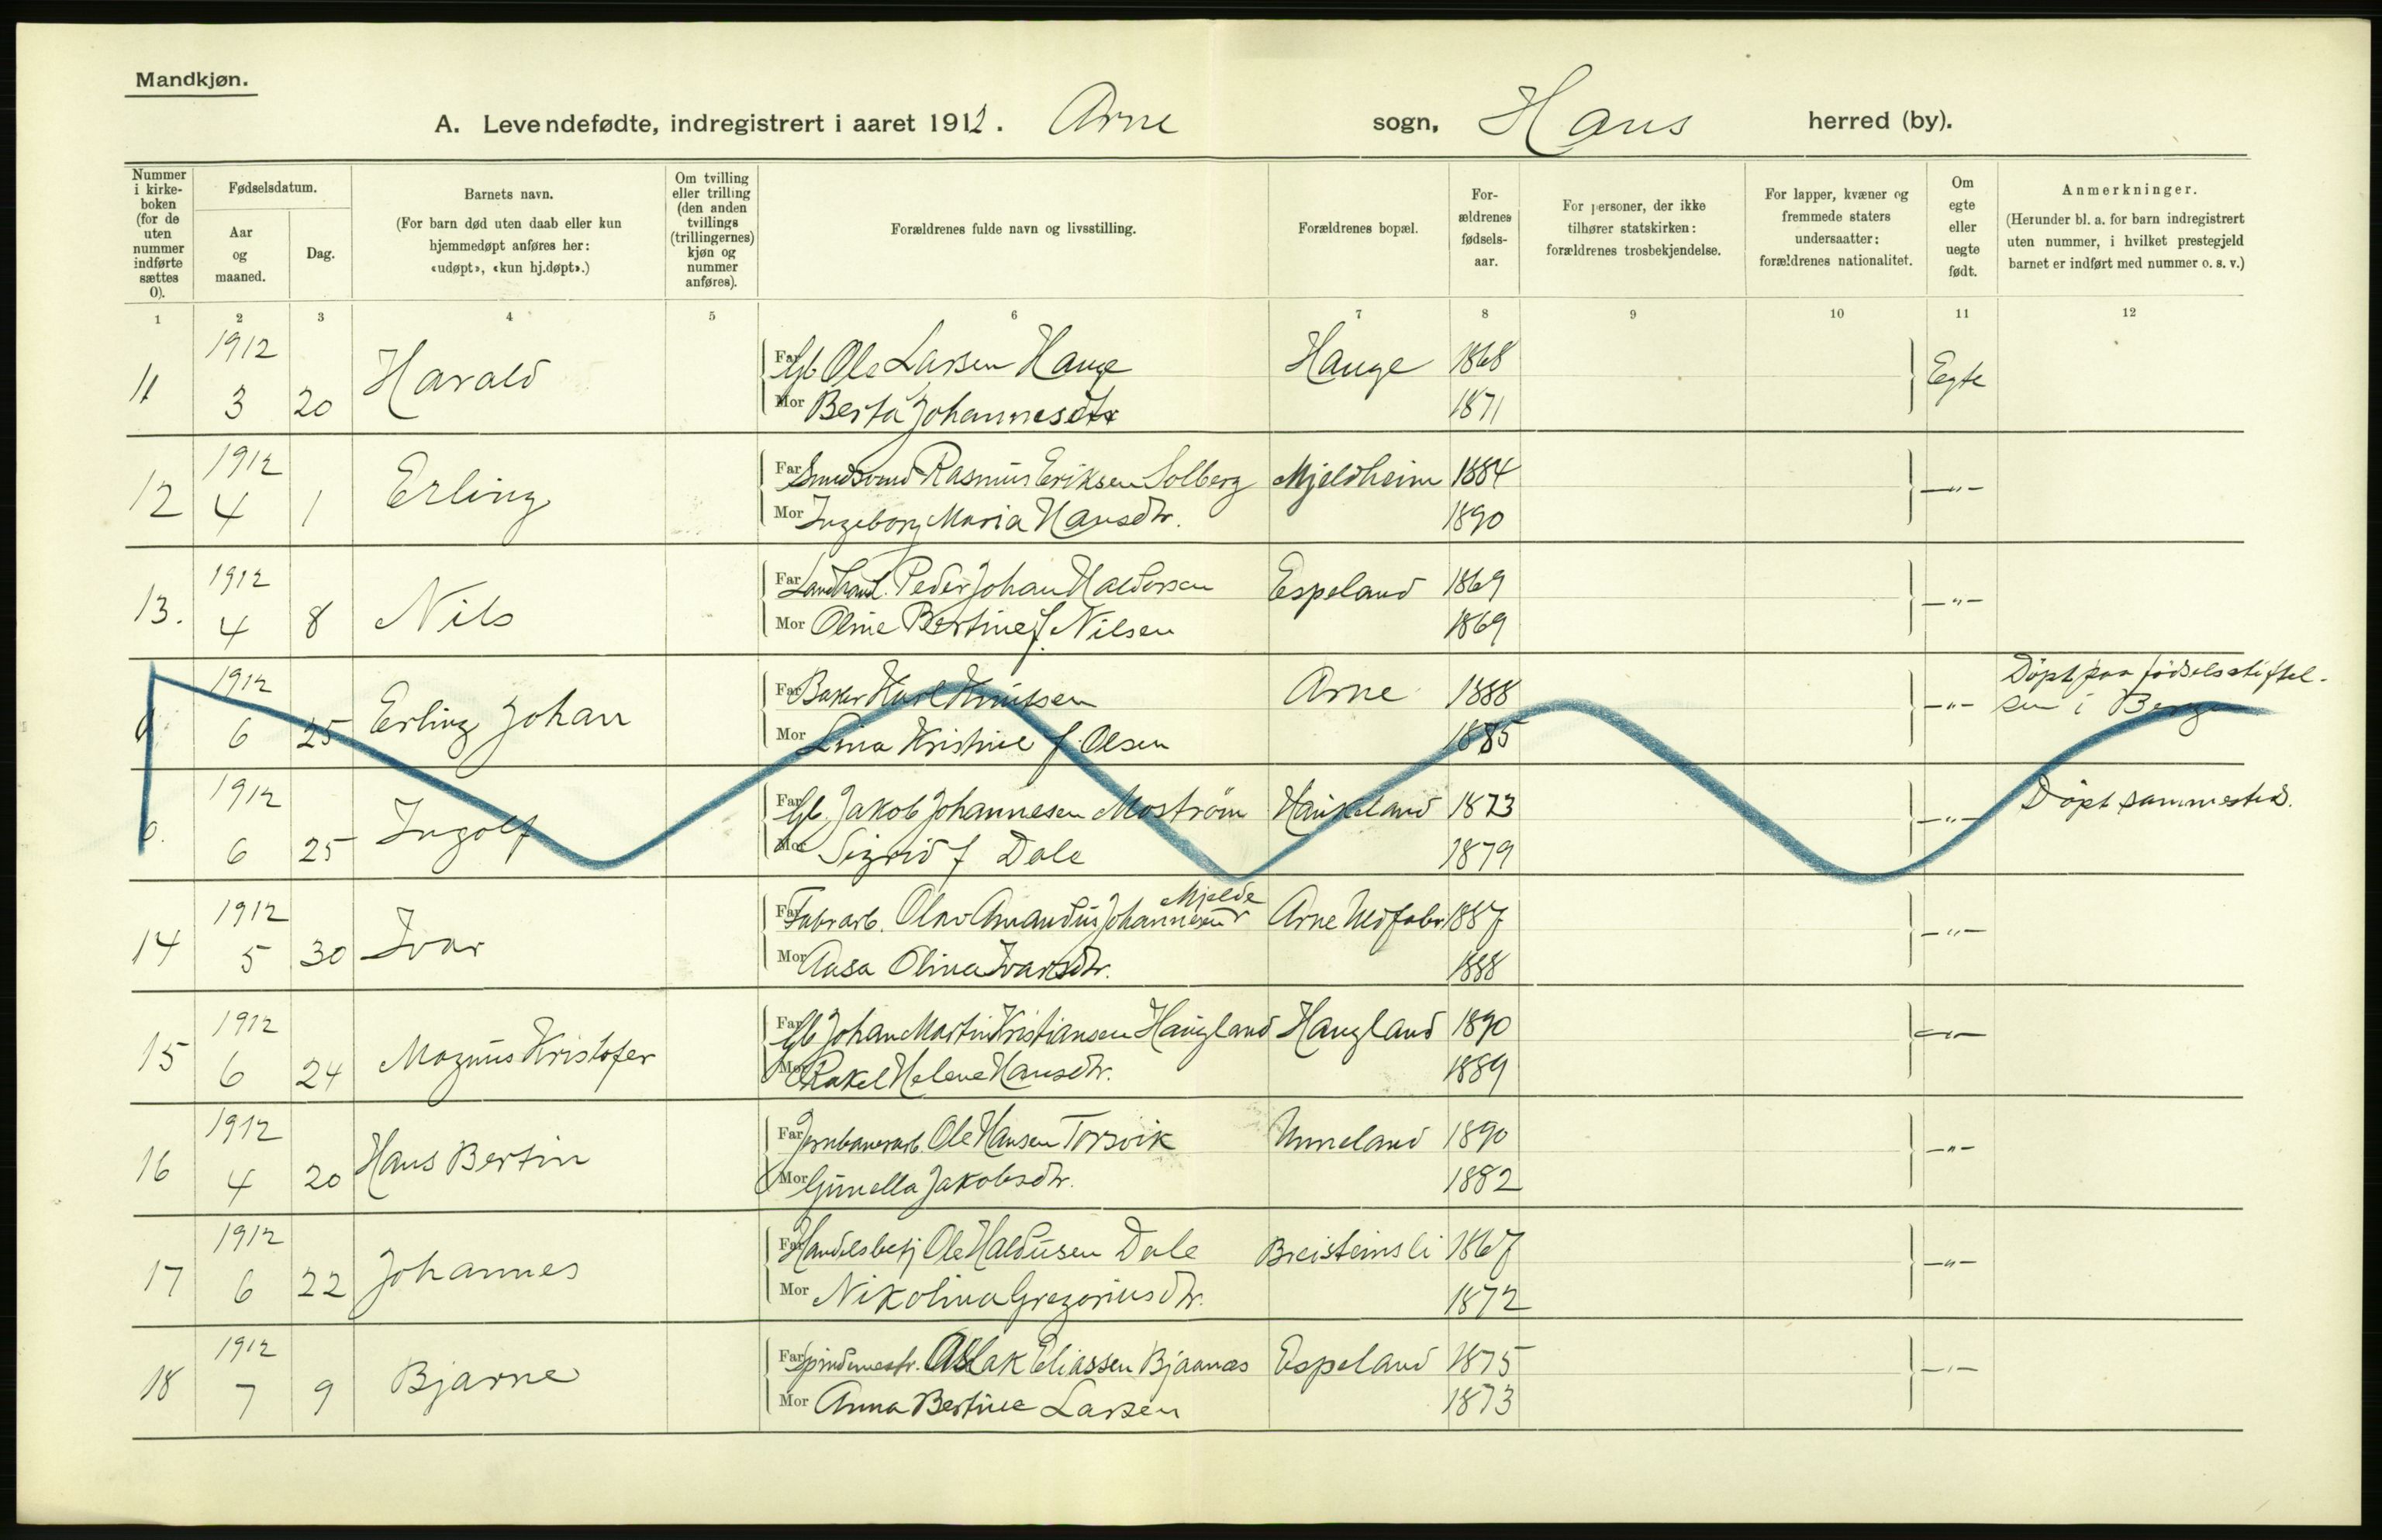 Mandkjøn.
A. Levendefødte, indregistrert i aaret 1912. Arne sogn, Haus herred (by).
Nummer i kirke- boken (for de uten nummer indførte sættes 0).
Fødselsdatum.
Aar og maaned.
Dag.
Barnets navn.
(For barn død uten daab eller kun hjemmedøpt anføres her: «udøpt», «kun hj.døpt».)
Om tvilling eller trilling (den anden tvillings (trillingernes) kjøn og nummer anføres).
Forældrenes fulde navn og livsstilling.
Forældrenes bopæl.
For- ældrenes fødsels- aar.
For personer, der ikke tilhører statskirken: forældrenes trosbekjendelse.
For lapper, kvæner og fremmede staters undersaatter: forældrenes nationalitet.
Om egte eller uegte født.
Anmerkninger.
(Herunder bl. a. for barn indregistrert uten nummer, i hvilket prestegjeld barnet er indført med nummer o. s. v.)
1 2 3 4 5 6 7 8 9 10 11 12
1912
11 3 20 Harald Far Gb Ole Larsen Hauge Hauge 1868 Egte
Mor Berta Johannesdtr 1871
1912
12 4 1 Erling Far Rasmus Eriksen Solberg Mjeldheim 1884 —"—
Mor Ingeborg Maria Hansdtr. 1890
1912
13. 4 8 Nils Far Landhand. Peder Johan Haldorsen Espeland 1869 —"—
Mor Oline Bertine f. Nilsen 1869
1912
0 6 25 Erling Johan Far Baker Karl Knutsen Arne 1888 —"— Døpt paa fødselsstiftel-
sen i Bergen
Mor Lina Kristine f. Olsen 1885
1912
0. 6 25 Ingolf Far Gb. Jakob Johannesen Moström Haukeland 1873 —"— Døpt sammesteds.
Mor Sigrid f Dale 1879
1912
14 5 30 Ivar Far Fabrarb. Olav Amandus Johannesen Mjelde Arne Uldfabr 1887 —"—
Mor Aasa Olina Ivarsdtr. 1888
1912
15 6 24 Magnus Kristofer Far Gb Johan Martin Kristiansen Haugland Haugland 1890 —"—
Mor Rakel Helene Hansdtr. 1889
1912
16 4 20 Hans Bertin Far Jernbanearb. Ole Hansen Torsvik Unneland 1890 —"—
Mor Gunella Jakobsdtr. 1882
1912
17 6 22 Johannes Far Handelsbetj Ole Haldusen Dale Breisteinsli 1867 —"—
Mor Nikolina Gregoriusdtr. 1872
1912
18 7 9 Bjarne Far Spindemestr. Aslak Eliassen Bjaanæs Espeland 1875 —"—
Mor Anna Bertine Larsen 1873